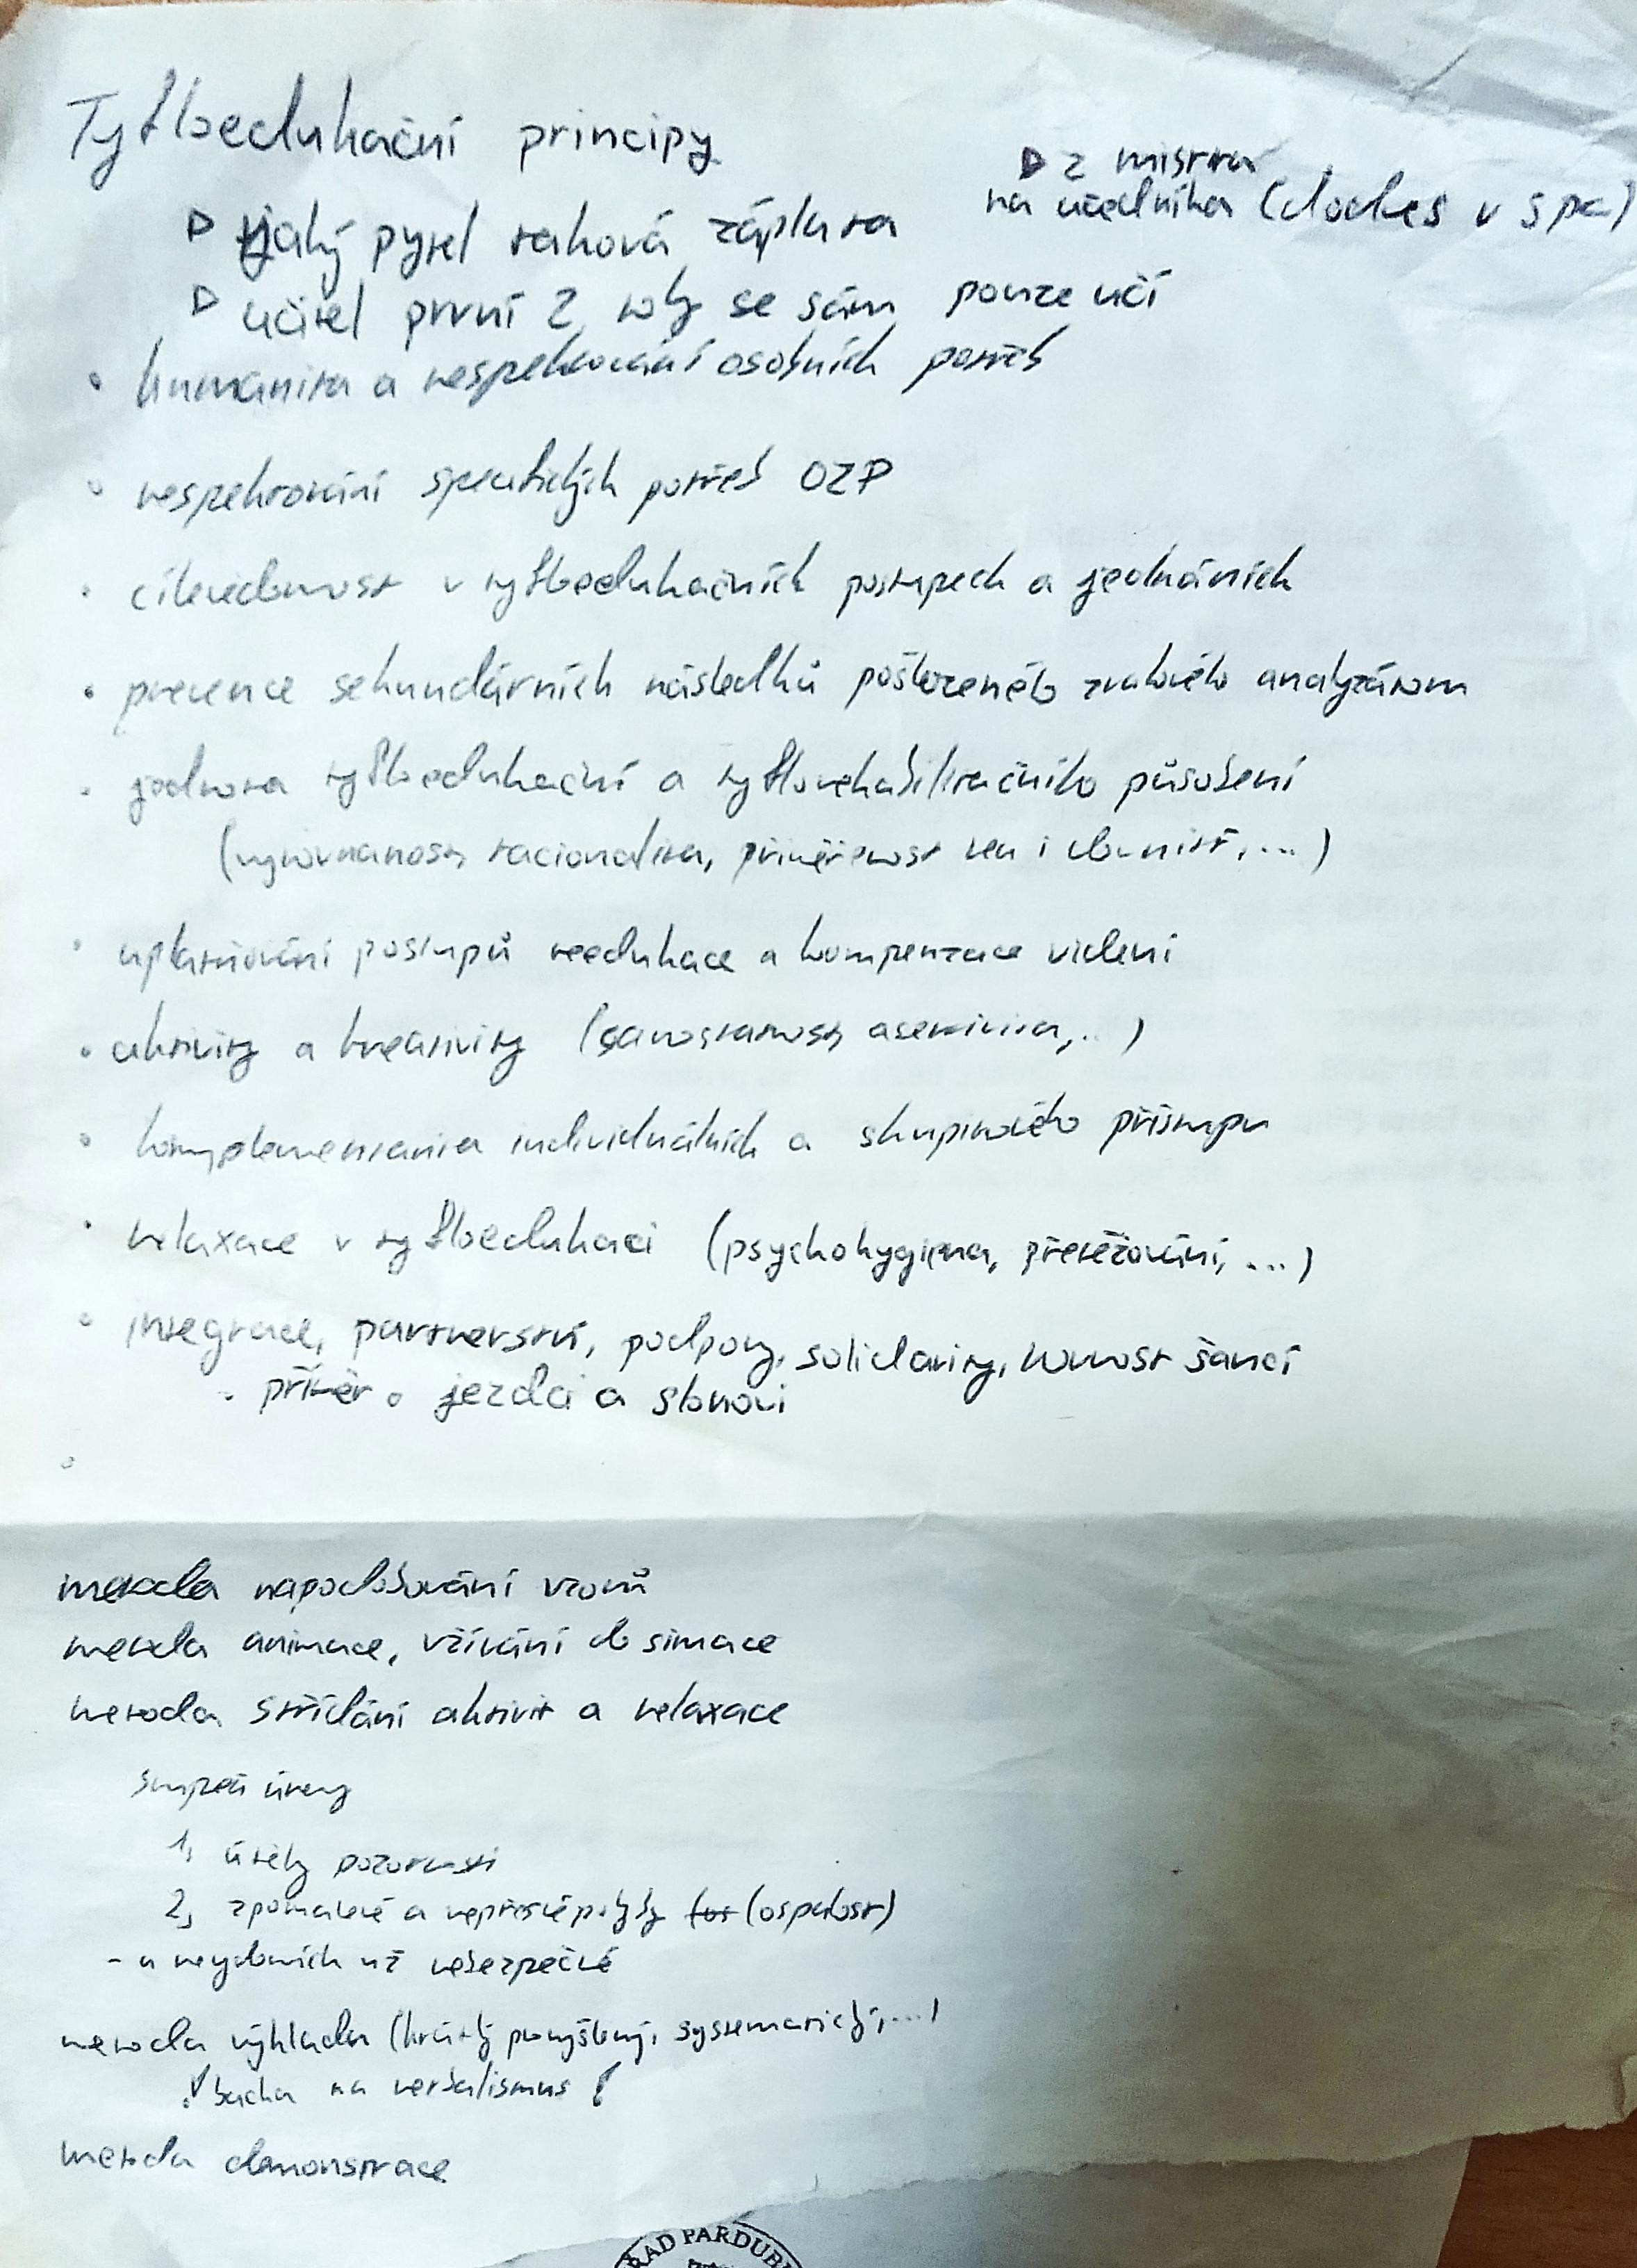 Tyfloedukační principy
▷ jaký pytel taková záplata
▷ z mistra
na učedníka (dodnes v spc)
▷ učitel první 2 roky se sám pouze učí
• humanita a respektování osobních potřeb
• respektování specifických potřeb OZP
• cílevědomost v tyfloedukačních postupech a jednáních
• prevence sekundárních následků poškozeného zrakového analyzátoru
• jednota tyfloedukační a tyflorehabilitačního působení
(vyrovnanost, racionalita, přiměřenost
• uplatňování postupů reedukace a kompenzace videní
• aktivity a kreativity (samostatnost, asertivita,..)
• komplementarita individuálních a skupinového přístupu
• relaxace v tyfloedukaci (psychohygiena, přetěžování, ...)
• integrace, partnerství, podpory, solidarity, rovnost šancí
- příměr o jezdci a slonovi
metoda napodobování vzorů
metoda animace, vžívání do situace
metoda střídání aktivit a relaxace
stupeň únavy
1, útěky pozornosti
2, zpomalené a nepřesné pohyby (ospalost)
- u nevidomích už nebezpečné
metoda výkladu (krátký promyšlený, systematický,...)
! bacha na verbalismus !
metoda demonstrace
RAD PARDUBI